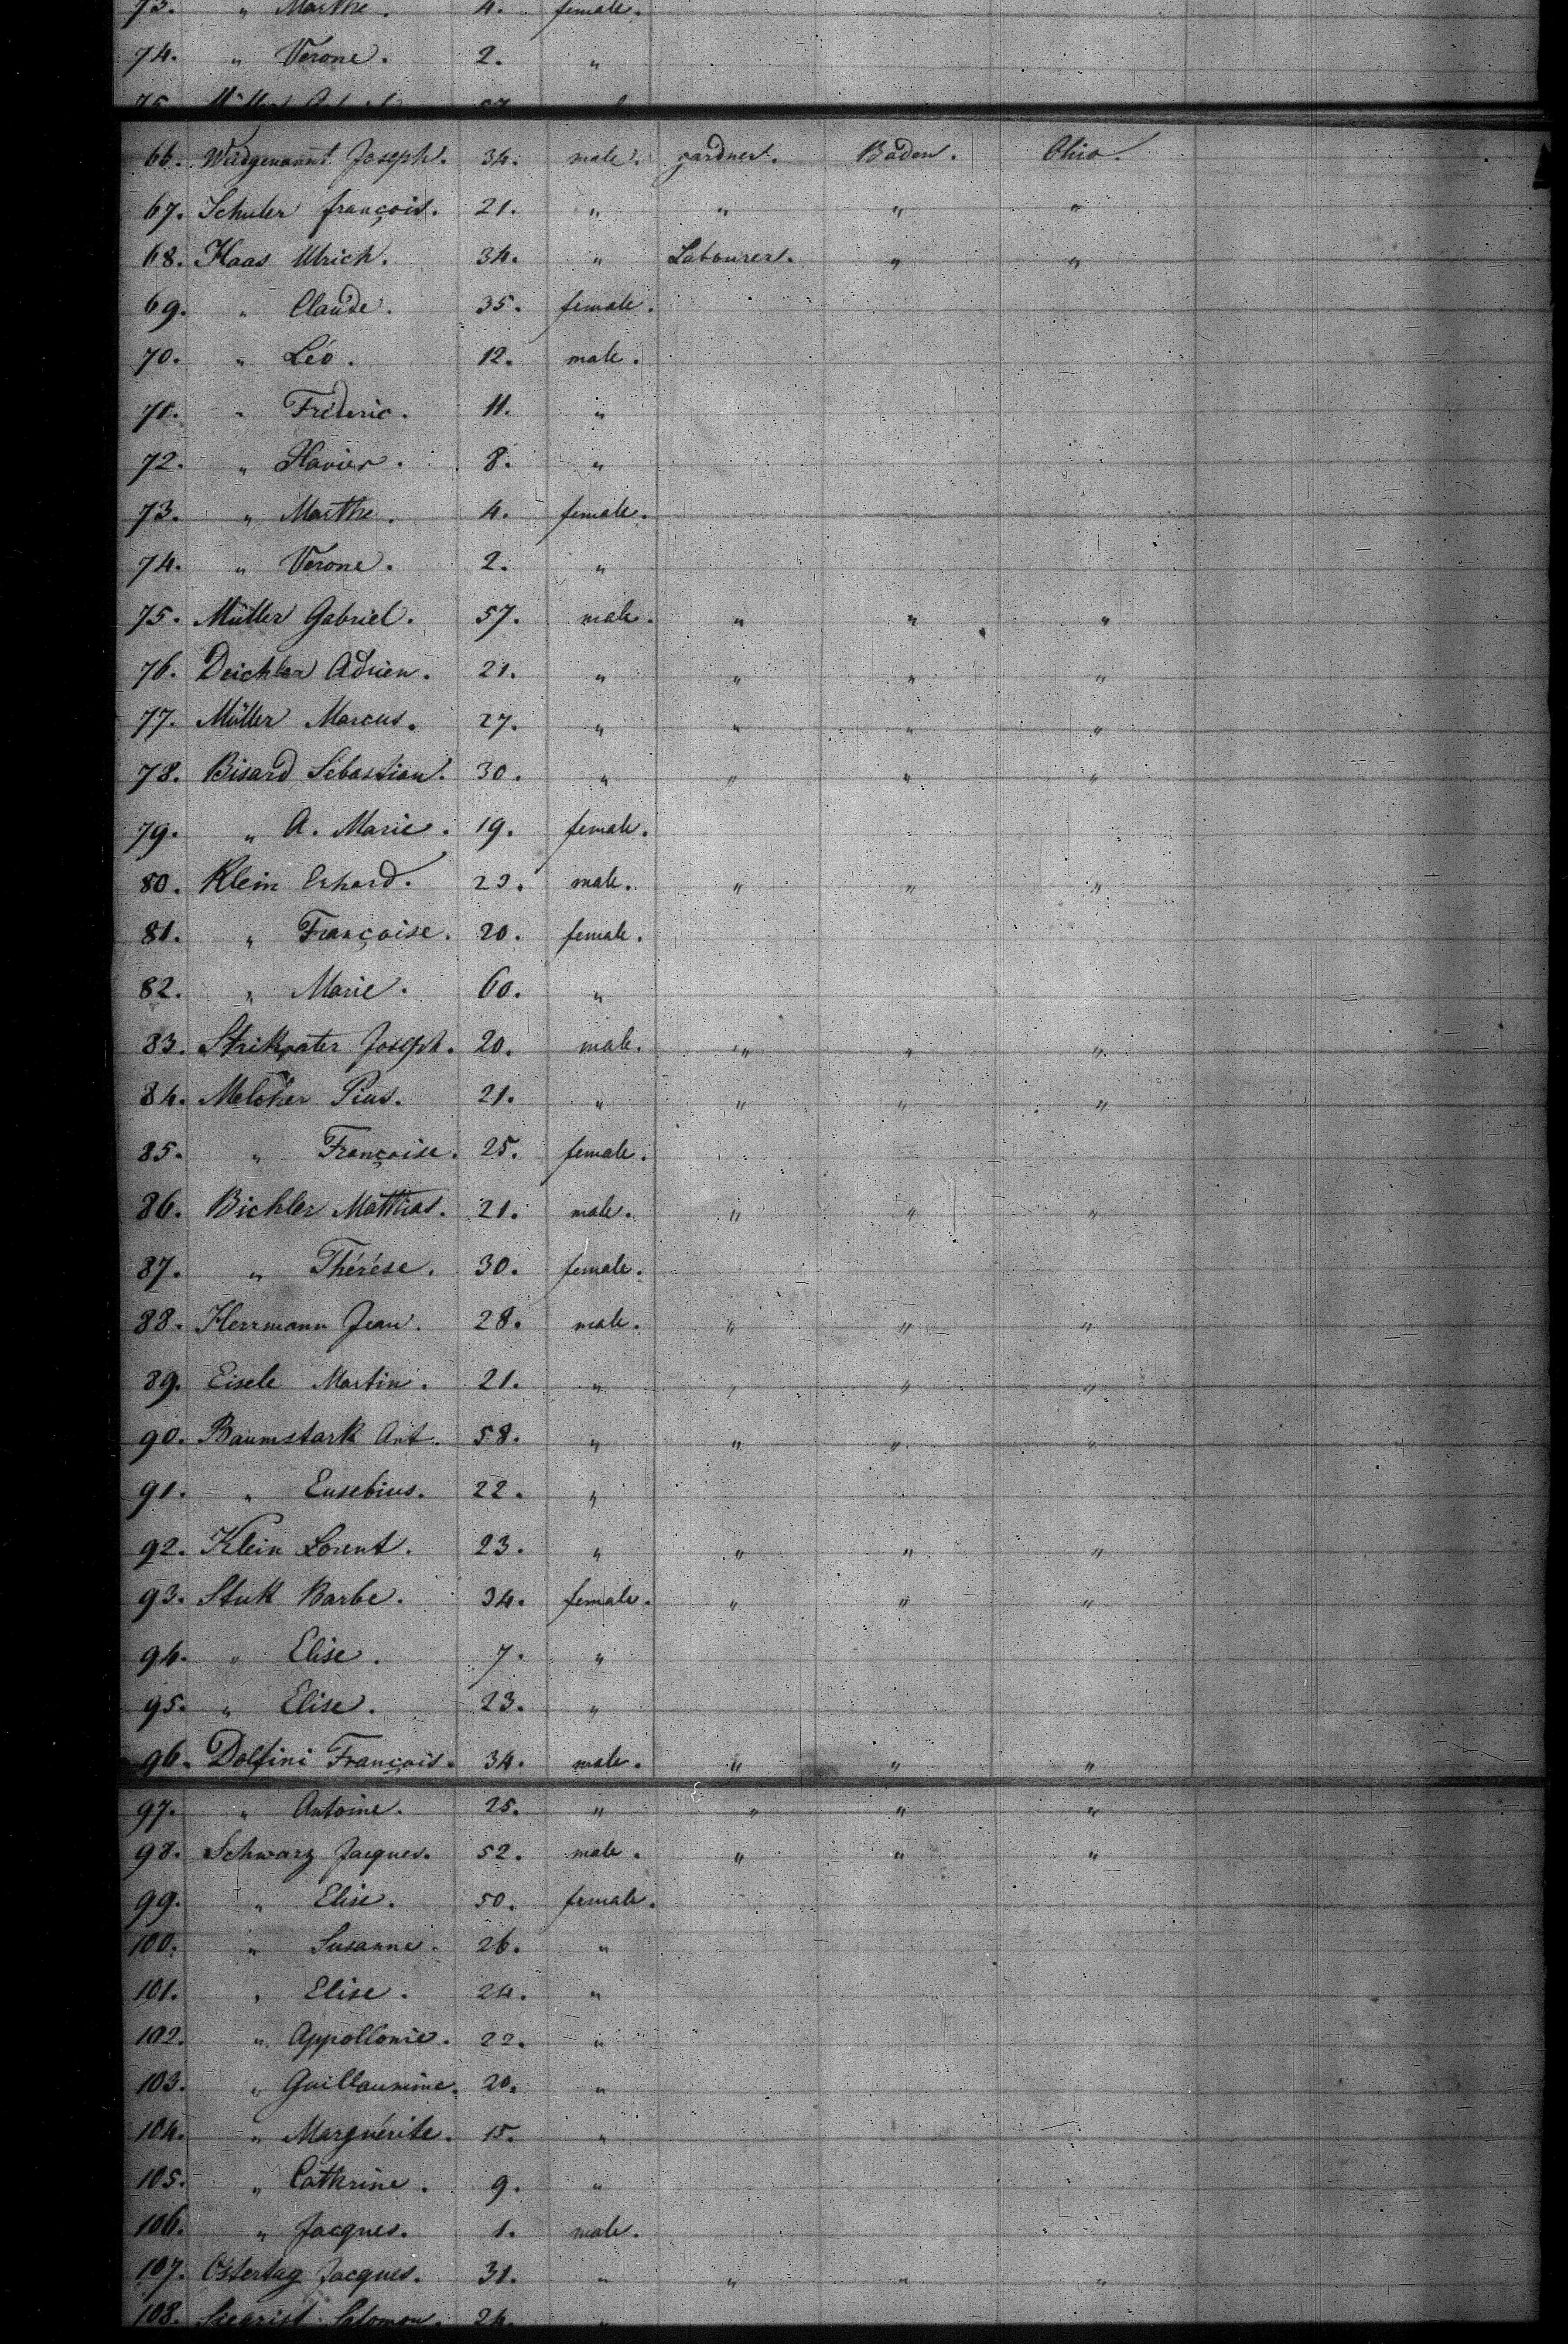 73. " Marthe. 4. female.
74. " Verone. 2. "
75. Müller Gabriel 57
66. Joseph. 34. male. gardner. Baden. Ohio.
67. Schuler françois. 21. " " " "
68. Haas Ulrich. 34. " Labourer. " "
69. " Claude. 35. female.
70. " Léo. 12. male.
71. " Fréderic. 11. "
72. " Xavier. 8. "
73. " Marthe. 4. female.
74. " Verone. 2. "
75. Müller Gabriel. 57. male. " " "
76. Deichler Adrien. 21. " " " "
77. Müller Marcus. 27. " " " "
78. Bisard Sébastian. 30. " " " "
79. " A. Marie. 19. female.
80. Klein Erhard. 23. male. " " "
81. " Françoise. 20. female.
82. " Marie. 60. "
83. Joseph. 20. male. " " "
84. Melcher Pius. 21. " " " "
85. " Françoise. 25. female.
86. Bichler Matthias. 21. male. " " "
87. " Thérése. 30. female.
88. Herrmann Jean. 28. male. " " "
89. Eisele Martin. 21. " " " "
90. Baumstark Ant. 58. " " " "
91. " Eusebius. 22. "
92. Klein Lorent. 23. " " " "
93. Stuk Barbe. 34. female. " " "
94. " Elise. 7. "
95. " Elise. 23. "
96. Dolfini François. 34. male. " " "
97. " Antoine. 25. " " " "
98. Schwarz Jacques. 52. male. " " "
99. " Elise. 50. female.
100. " Susanne. 26. "
101. " Elise. 24. "
102. " Appollonie. 22. "
103. " Guillaumine. 20. "
104. " Marguérite. 15. "
105. " Cathrine. 9. "
106. " Jacques. 1. male.
107. Ostertag Jacques. 31. " " " "
108. Siegrist Salomon. 24. "